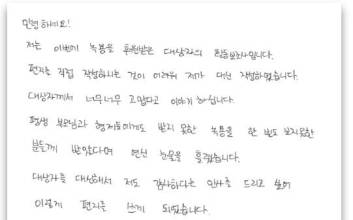 안녕하세요!
저는 이번에 녹용을 후원받은 대상자의 활동보조사입니다.
편지를 직접 작성하시는 것이 어려워 제가 대신 작성하였습니다.
대상자께서 너무너무 고맙다고 이야기 하십니다.
평생 부모님과 형제들에게도 받지 못한 녹용을 한 번도 보지못한
분들께 받았다며 연신 눈물을 흘렸습니다.
대상자를 대신해서 저도 감사하다는 인사를 드리고 싶어
이렇게 편지를 쓰게 되었습니다.